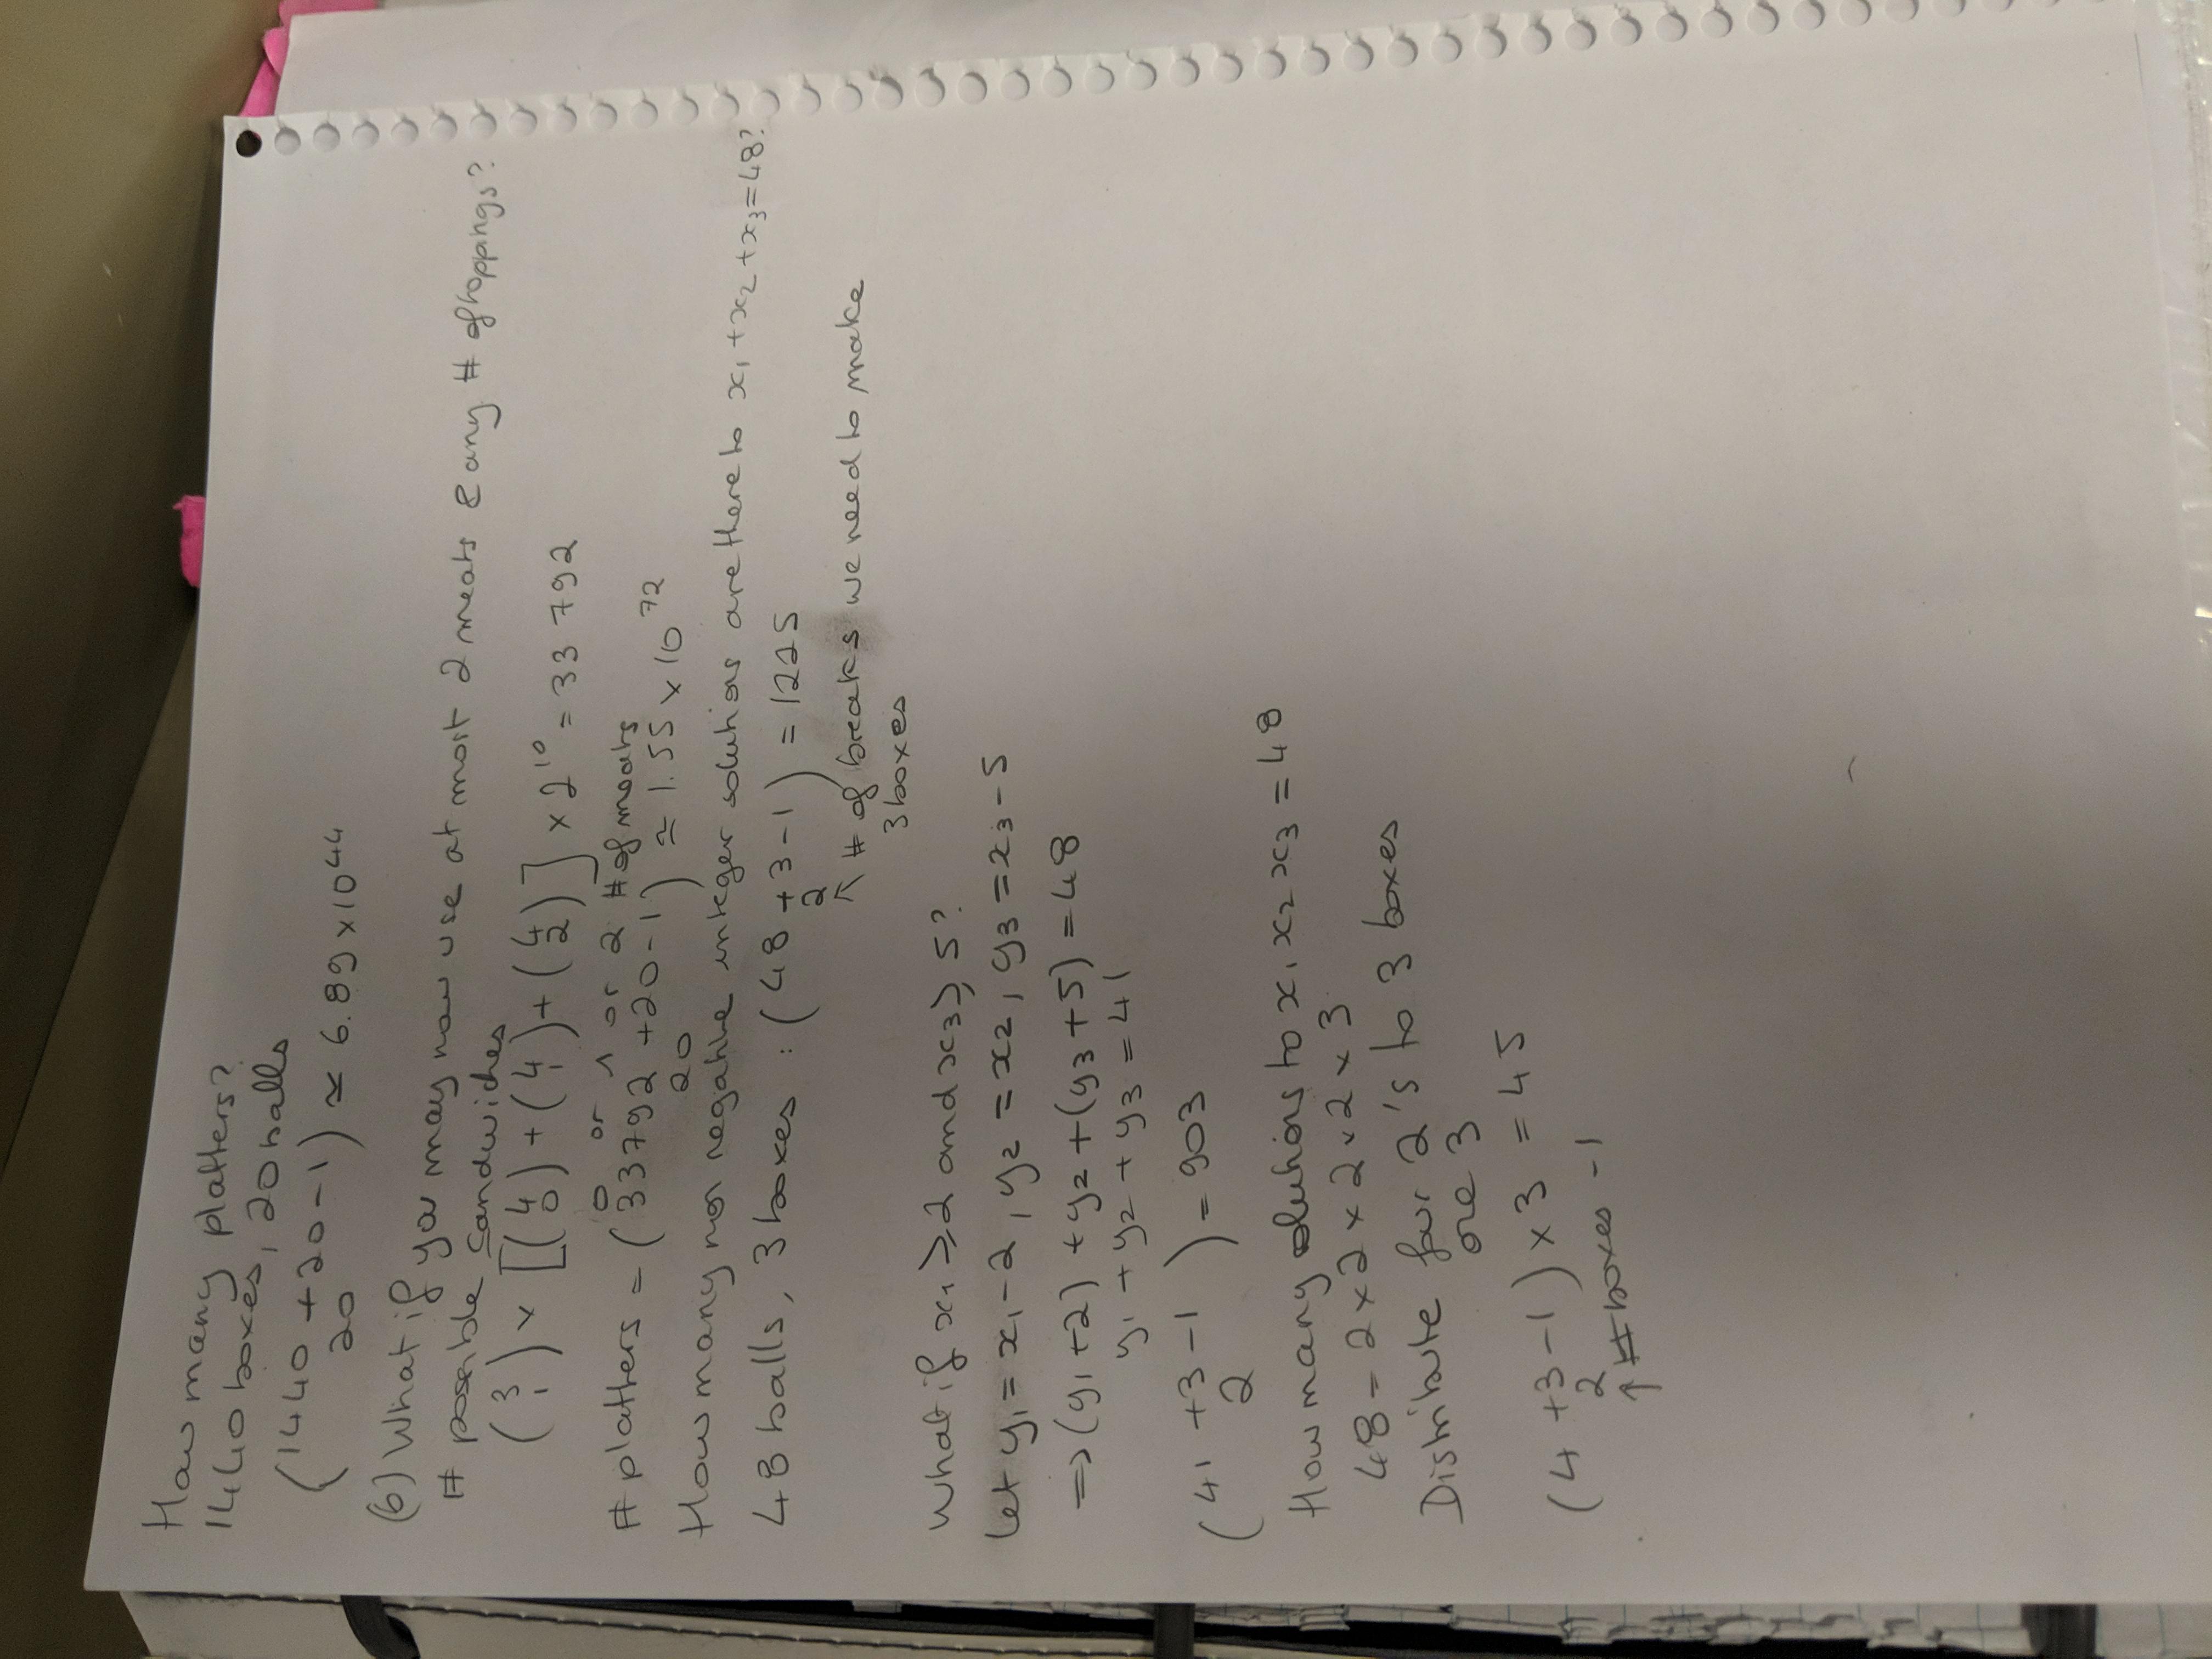 How many platters?
1440 boxes, 20 balls
(1440 + 20 - 1) ≃ 6.89 x 10^44
20
(6) What if you may now use at most 2 meats & any # of toppings?
# possible sandwiches
(3 1) x [(4 0) + (4 1) + (4 2)] x 2^10 = 33 792
0 or 1 or 2 # of meats
# platters = (33792 + 20 - 1) ≃ 1.55 x 10^72
20
How many non negative integer solutions are there to x₁ + x₂ + x₃ = 48?
48 balls, 3 boxes : (48 + 3 - 1) = 1225
2
↑ # of breaks we need to make
3 boxes
What if x₁ ≥ 2 and x₃ ≥ 5?
Let y₁ = x₁ - 2, y₂ = x₂, y₃ = x₃ - 5
⇒ (y₁ + 2) + y₂ + (y₃ + 5) = 48
y₁ + y₂ + y₃ = 41
(41 + 3 - 1) = 903
2
How many solutions to x₁ x₂ x₃ = 48
48 = 2 x 2 x 2 x 2 x 3
Distribute four 2's to 3 boxes
one 3
(4 + 3 - 1) x 3 = 45
2
↑ # boxes - 1